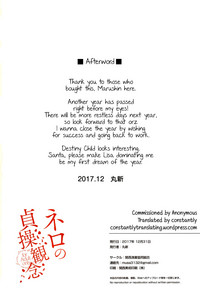 ■ Afterword ■
Thank you to those who
bought this, Marushin here.
Another year has passed
right before my eyes!
There will be more restless days next year,
so look forward to that orz
I wanna close the year by wishing
for success and going back to work.
Destiny Child looks interesting.
Santa, please make Lisa dominating me
be my first dream of the year.
2017.12 丸新
Commissioned by Anonymous
Translated by constantly
constantlytranslating.wordpress.com
ネロの
貞操観念
発行日:2017年 12月31日
発行者:丸新